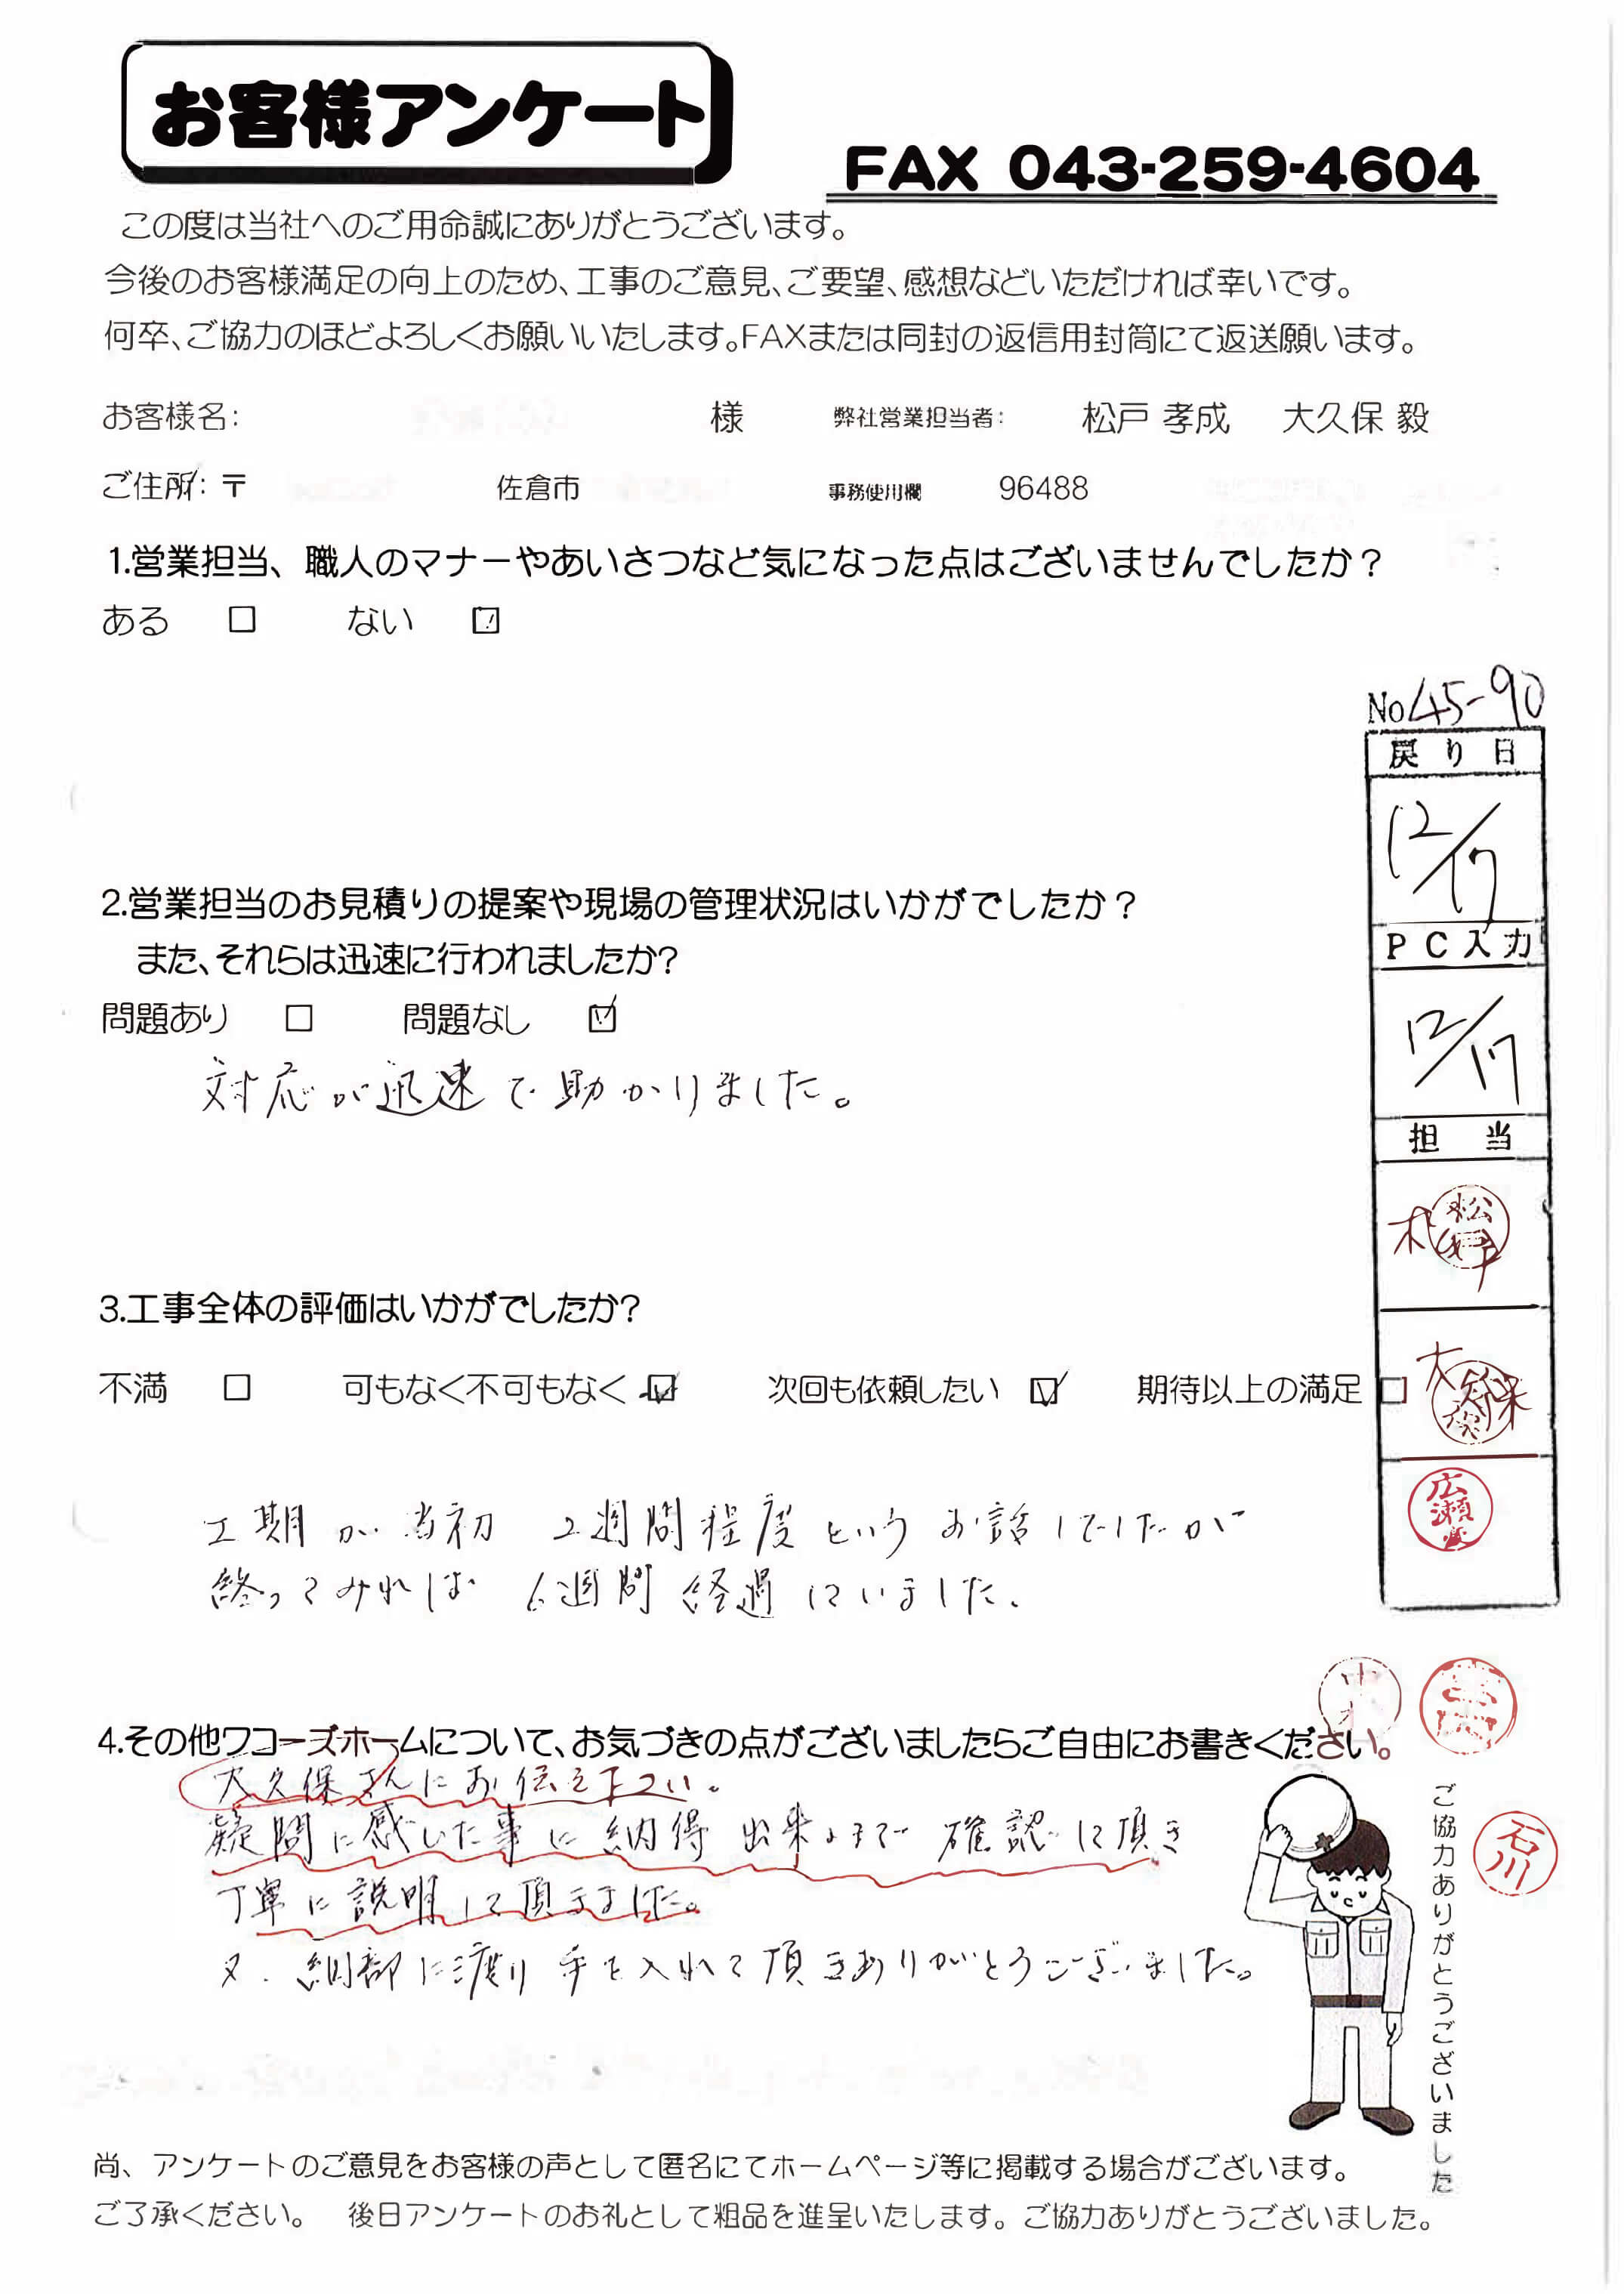 お客様アンケート
FAX 043-259-4604
この度は当社へのご用命誠にありがとうございます。
今後のお客様満足の向上のため、工事のご意見、ご要望、感想などいただければ幸いです。
何卒、ご協力のほどよろしくお願いいたします。FAXまたは同封の返信用封筒にて返送願います。
お客様名: 様 弊社営業担当者: 松戸 孝成 大久保 毅
ご住所:〒 佐倉市 事務使用欄 96488
1.営業担当、職人のマナーやあいさつなど気になった点はございませんでしたか？
ある □ ない ☑
No 45-90
戻り日
12/17
PC入力
12/17
担当
松戸
大久保
広瀬
2.営業担当のお見積りの提案や現場の管理状況はいかがでしたか？
また、それらは迅速に行われましたか?
問題あり □ 問題なし ☑
対応が迅速で助かりました。
3.工事全体の評価はいかがでしたか?
不満 □ 可もなく不可もなく ☑ 次回も依頼したい ☑ 期待以上の満足 □
工期が当初 2週間程度というお話しでしたが
終ってみれば 6週間経過していました。
4.その他ワコーズホームについて、お気づきの点がございましたらご自由にお書きください。
大久保さんにお伝え下さい。
疑問に感じた事に納得出来るまで確認して頂き
丁寧に説明して頂きました。
又、細部に渡り手を入れて頂きありがとうございました。
石川
ご協力ありがとうございました
尚、アンケートのご意見をお客様の声として匿名にてホームページ等に掲載する場合がございます。
ご了承ください。 後日アンケートのお礼として粗品を進呈いたします。ご協力ありがとうございました。